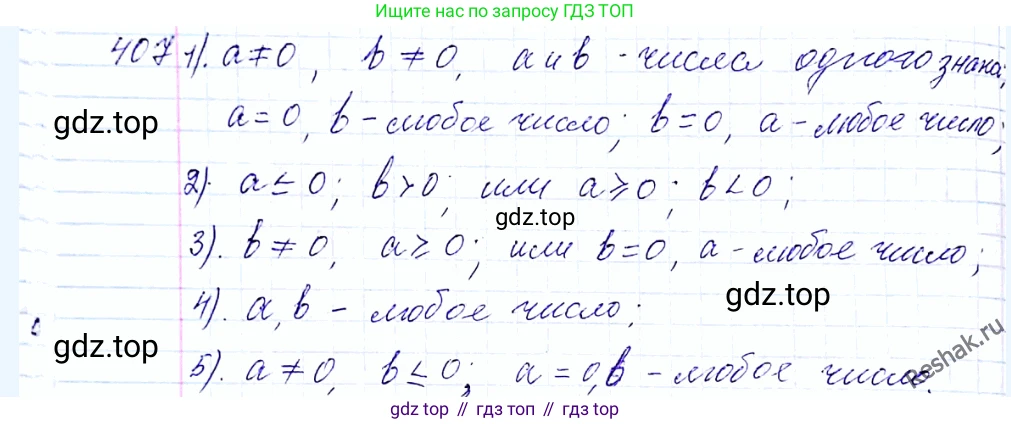 Ищите нас по запросу ГДЗ ТОП
407 1). a ≠ 0, b ≠ 0, a и b - числа одного знака;
a = 0, b - любое число; b = 0, a - любое число;
gdz.top
2). a ≤ 0; b > 0; или a ≥ 0; b < 0;
gdz.top
3). b ≠ 0, a ≥ 0; или b = 0, a - любое число;
gdz.top
4). a, b - любое число;
gdz.top
Reshak.ru
5). a ≠ 0, b ≤ 0; a = 0, b - любое число.
gdz top // гдз топ // gdz.top